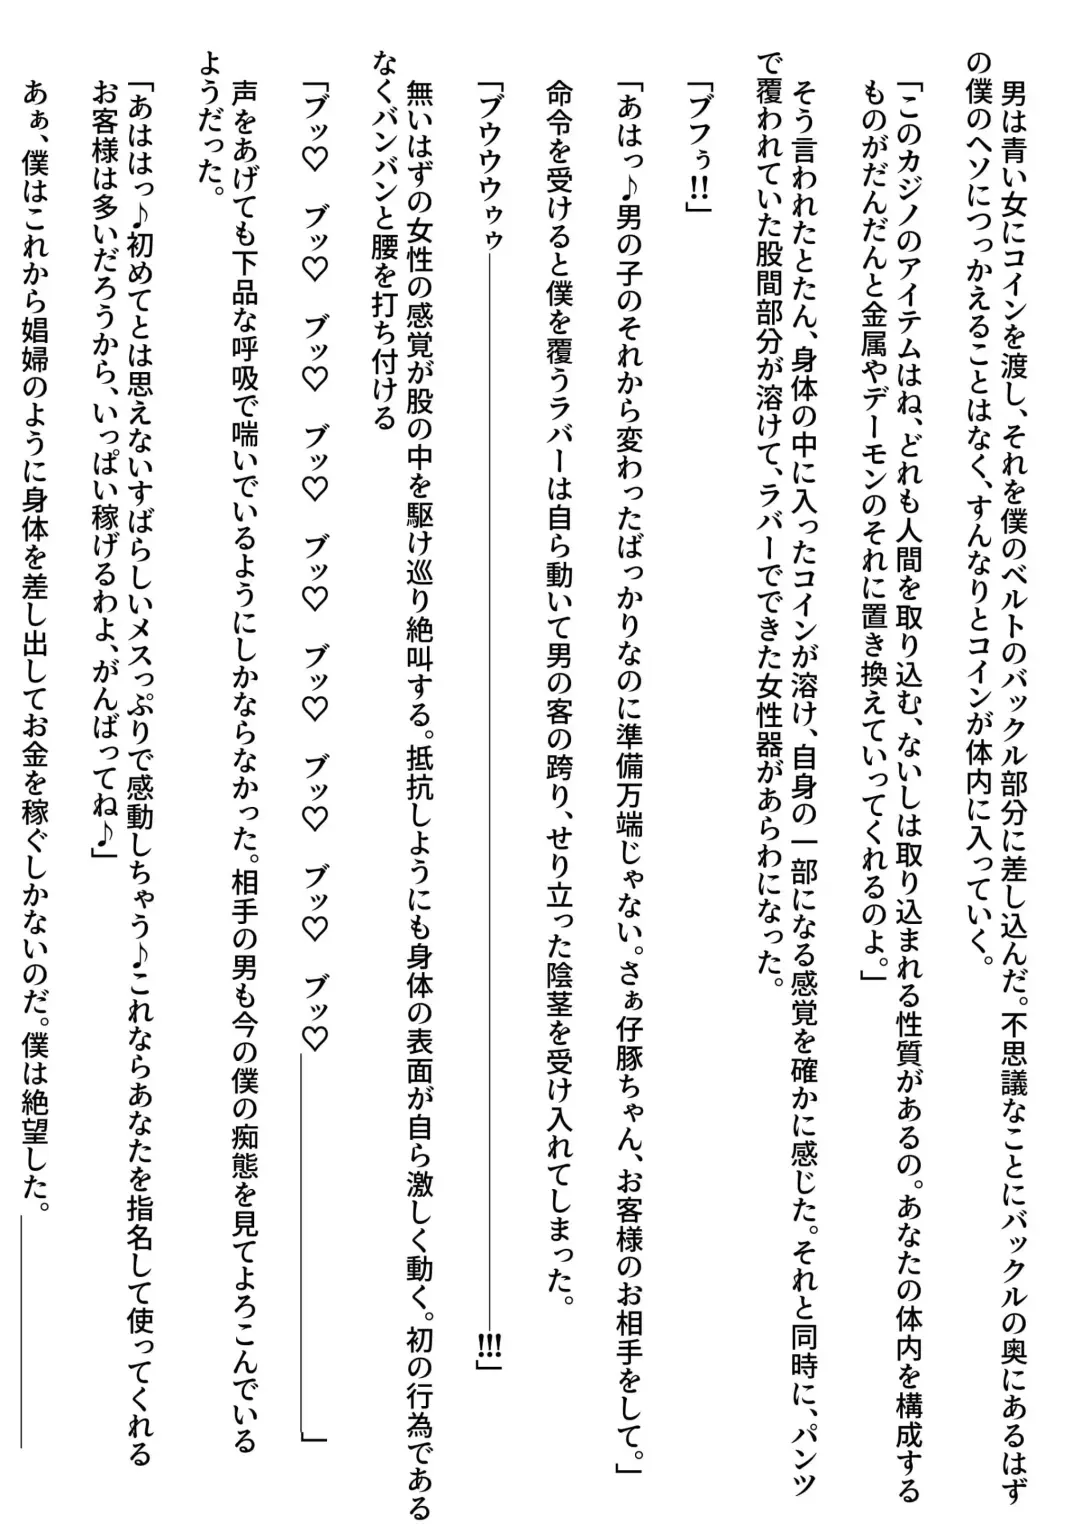 男は青い女にコインを渡し、それを僕のベルトのバックル部分に差し込んだ。不思議なことにバックルの奥にあるはず
の僕のヘソにつっかえることはなく、すんなりとコインが体内に入っていく。
「このカジノのアイテムはね、どれも人間を取り込む、ないしは取り込まれる性質があるの。あなたの体内を構成する
ものがだんだんと金属やデーモンのそれに置き換えていってくれるのよ。」
そう言われたとたん、身体の中に入ったコインが溶け、自身の一部になる感覚を確かに感じた。それと同時に、パンツ
で覆われていた股間部分が溶けて、ラバーでできた女性器があらわになった。
「ブフぅ!!」
「あはっ♪男の子のそれから変わったばっかりなのに準備万端じゃない。さぁ仔豚ちゃん、お客様のお相手をして。」
命令を受けると僕を覆うラバーは自ら動いて男の客の跨り、せり立った陰茎を受け入れてしまった。
「ブウウウゥゥ――――――――――――――――――――――――――――!!!」
無いはずの女性の感覚が股の中を駆け巡り絶叫する。抵抗しようにも身体の表面が自ら激しく動く。初の行為である
なくバンバンと腰を打ち付ける
「ブッ♡　ブッ♡　ブッ♡　ブッ♡　ブッ♡　ブッ♡　ブッ♡　ブッ♡　ブッ♡――――――――――」
声をあげても下品な呼吸で喘いでいるようにしかならなかった。相手の男も今の僕の痴態を見てよろこんでいる
ようだった。
「あははっ♪初めてとは思えないすばらしいメスっぷりで感動しちゃう♪これならあなたを指名して使ってくれる
お客様は多いだろうから、いっぱい稼げるわよ、がんばってね♪」
あぁ、僕はこれから娼婦のように身体を差し出してお金を稼ぐしかないのだ。僕は絶望した。――――――